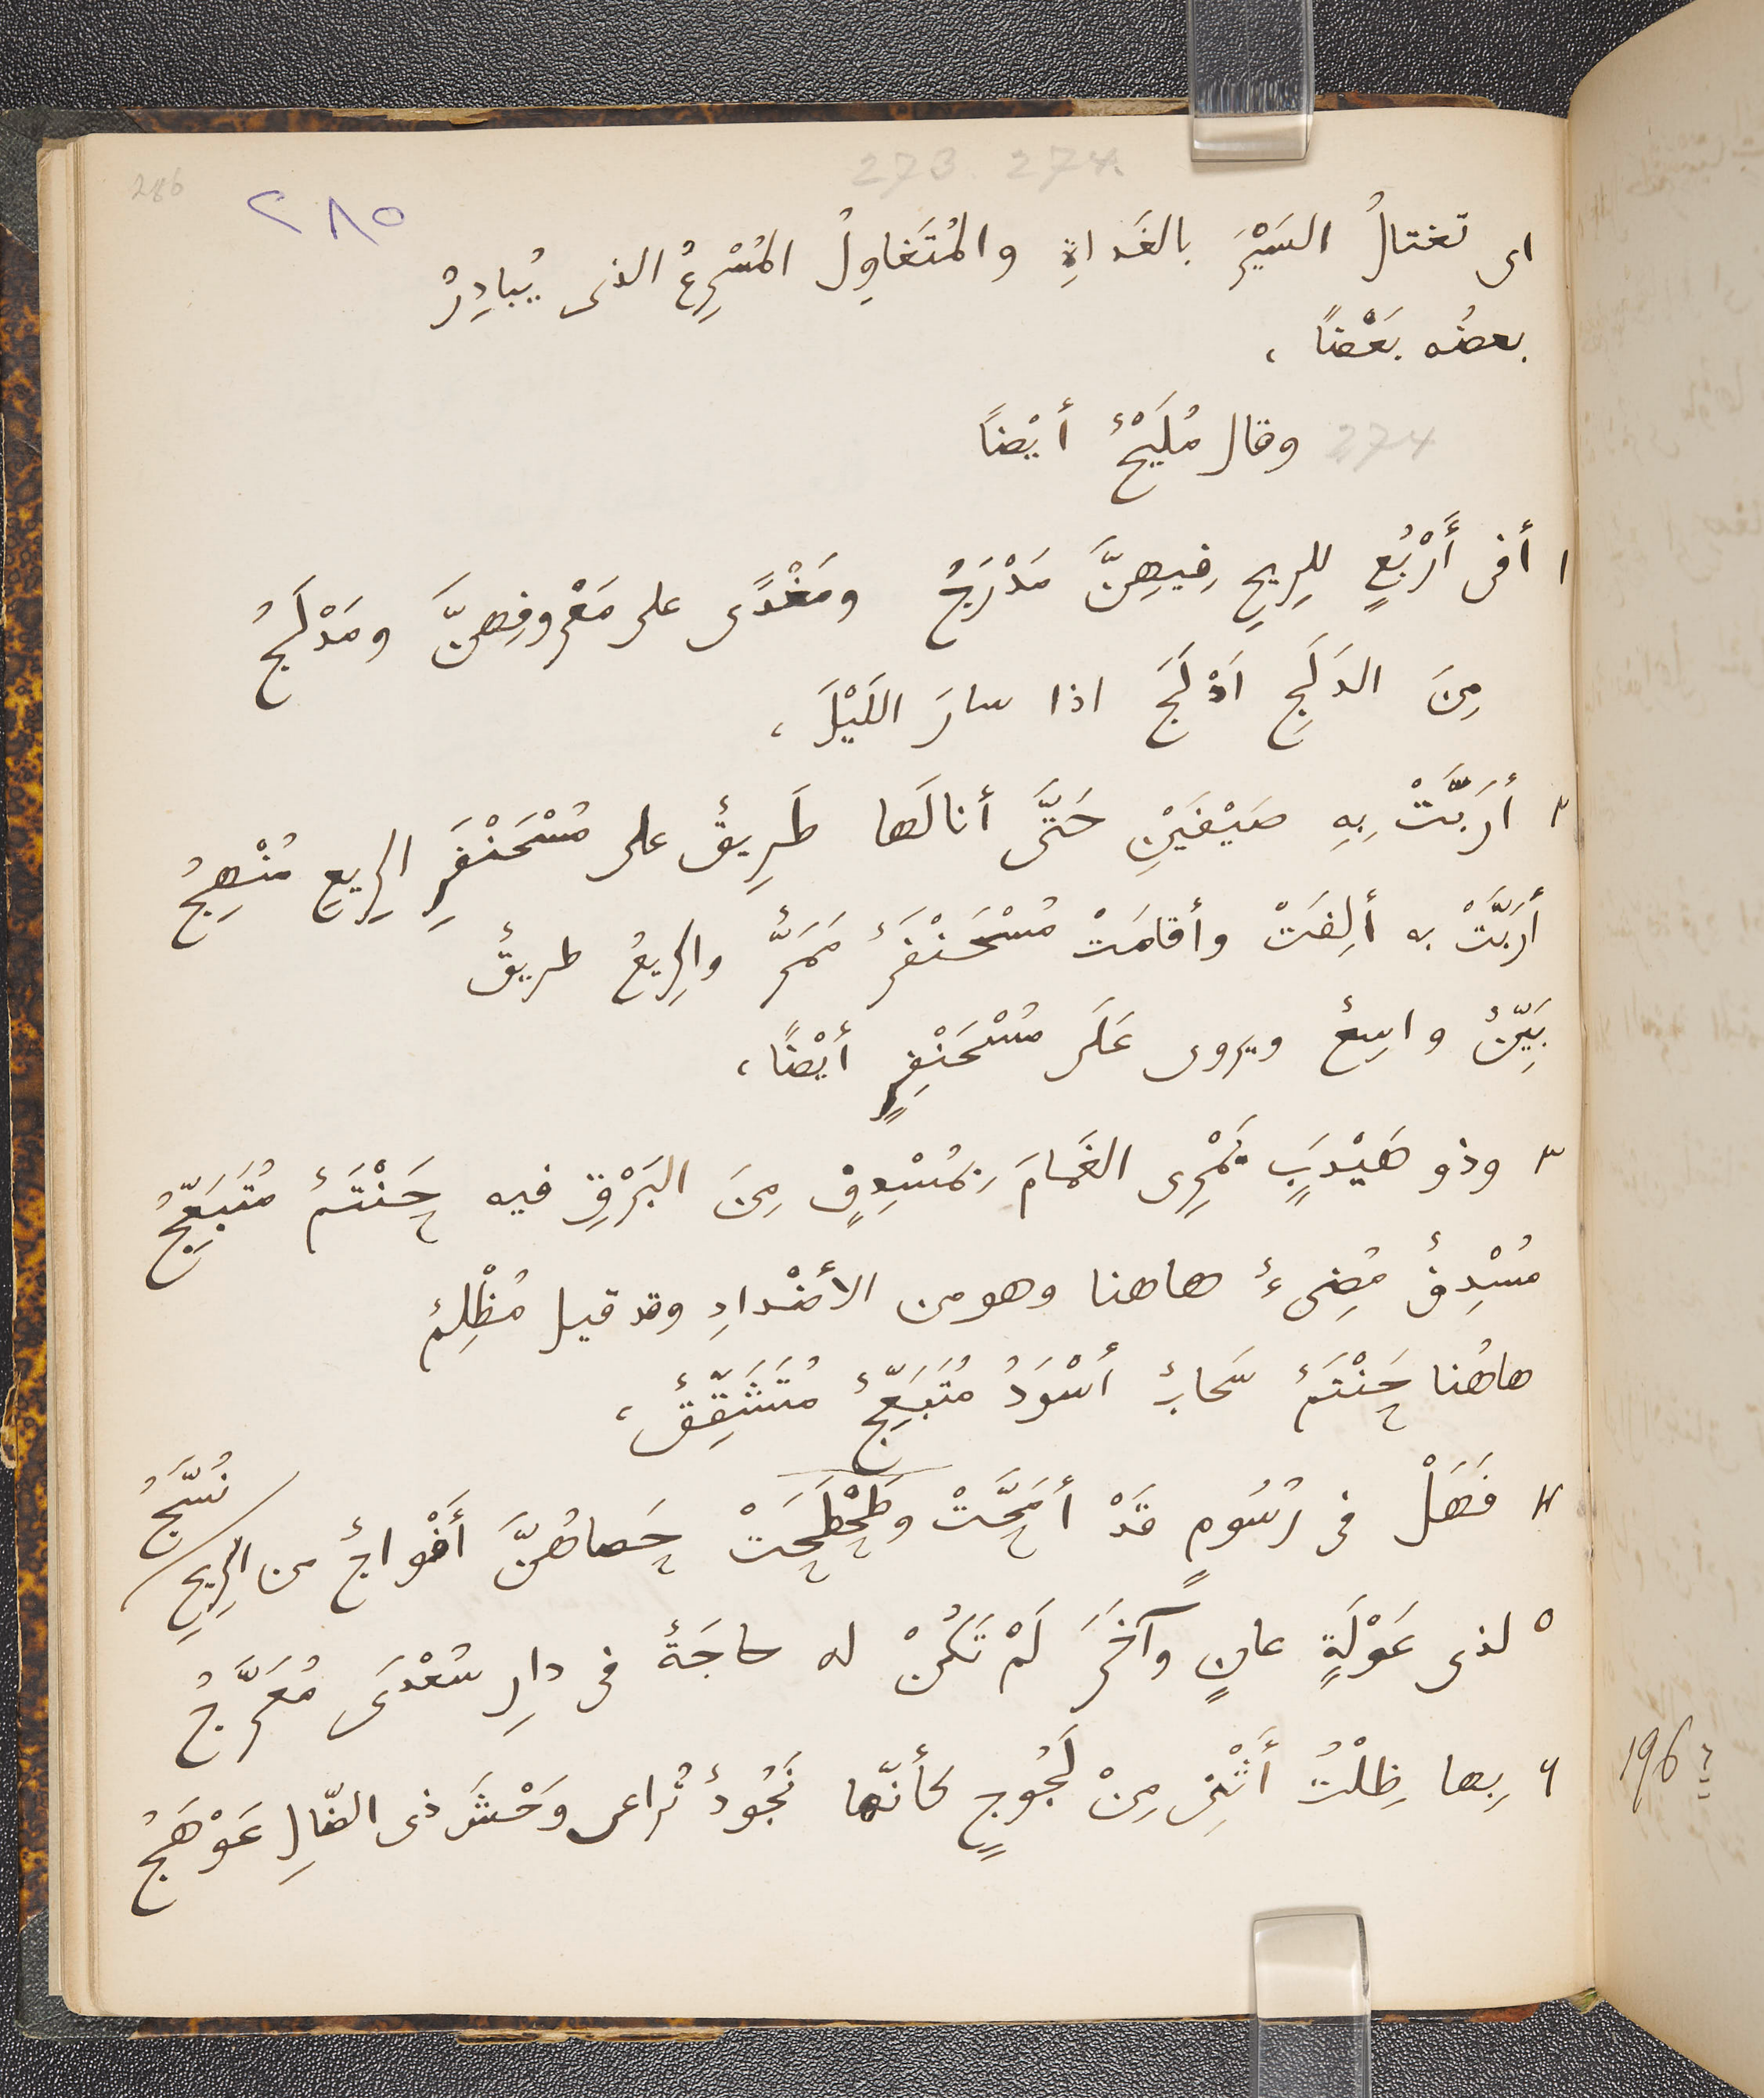 286
٢٨٥
273. 274.
اى تغتالُ السَيْرَ بالغَداةِ والمُتَغاوِلُ المُسْرِعُ الذى يُبادِرُ
بعضُه بَعْضًا ،
274 وقال مُلَيْحٌ أيْضاً
١ أفى أَرْبُعٍ للرِيحِ فِيهِنَّ مَدْرَجُ ومَغْدًى على مَعْروفِهِنَّ ومَدْلَجُ
مِنَ الدَلَجِ اَدْلَجَ اذا سارَ اللَيْلَ ،
٢ أرَبَّتْ بِهِ صَيْفَيْنِ حَتَّى أنالَها طَرِيقٌ على مُسْحَنْفَرِ الرِيعِ مُنْهِجُ
أرَبَّتْ به ألِفَتْ وأقامَتْ مُسْحَنْفَرٌ مَمَرٌّ والرِيعُ طريقٌ
بَيِّنٌ واسِعٌ ويروى عَلَى مُسْحَنْفِرٍ أيْضًا ،
٣ وذو هَيْدَبٍ يَمْرِى الغَمامَ بِمُسْدِفٍ مِنَ البَرْقِ فيه حَنْتَمٌ مُتَبَعِّجُ
مُسْدِفٌ مُضِىءٌ هاهنا وهو من الأضْدادِ وقد قيل مُظْلِمٌ
هاهُنا حَنْتَمٌ سَحابٌ أسْوَدُ مُتَبَعِّجٌ مُتَشَقِّقٌ ،
٤ فَهَلْ فى رُسُومٍ قَدْ أمَحَّتْ وطَحْطَحَتْ حَصاهُنَّ أَفْواجٌ من الرِيحِ نُسَّجُ
٥ لذى عَوْلَةٍ عانٍ وآخَرَ لَمْ تَكُنْ له حاجَةٌ فى دارِ سُعْدَى مُعَرَّجُ
٦ بِها ظِلْتُ أَثْنِى مِنْ لَجُوجٍ كأنّها نَجُودٌ تُراعى وَحْشَ ذى الضّالِ عَوْهَجُ
196